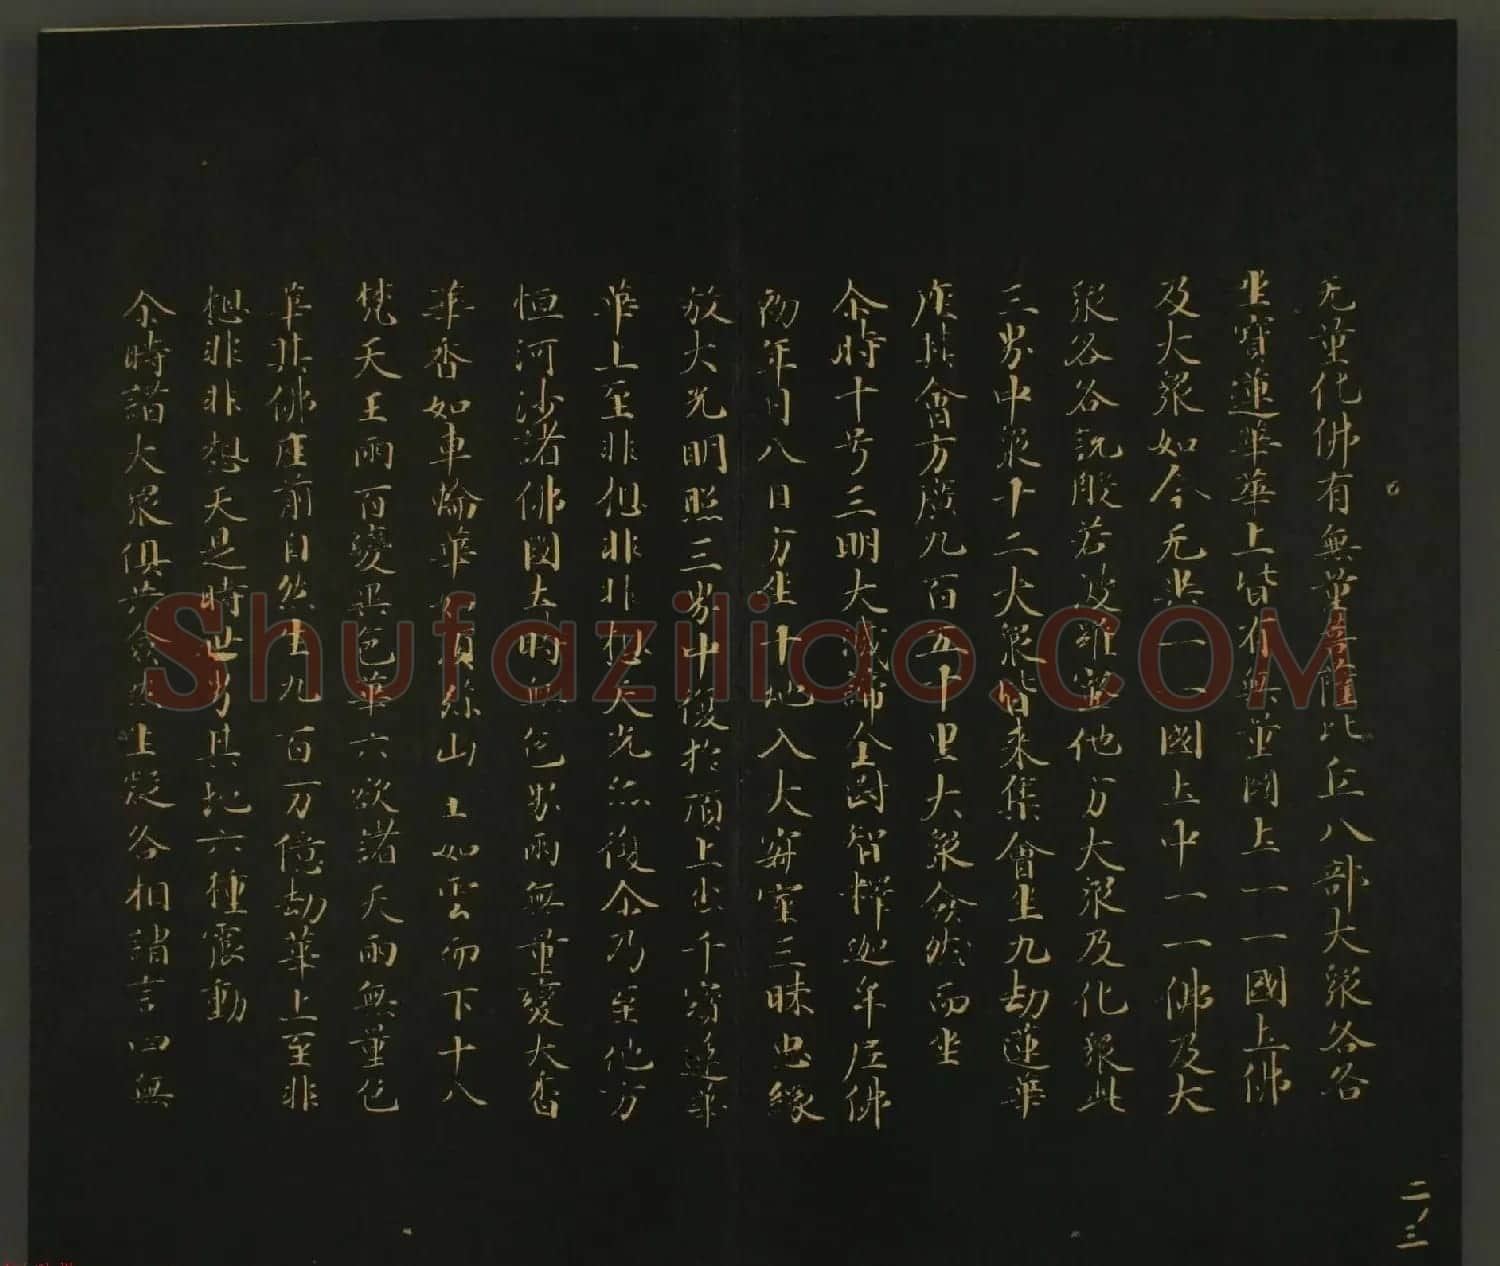 无量化佛有無量菩薩比丘八部大衆各各
坐寶蓮華華上皆有無量國土一一國土佛
及大衆如今无異一一國土中一一佛及大
衆各各說般若波羅蜜他方大衆及化衆此
三界中衆十二大衆皆來集會坐九劫蓮華
座其會方廣九百五十里大衆僉然而坐
尒時十号三明大滅諦金剛智釋迦牟尼佛
初年月八日方坐十地入大寂室三昧思緣
放大光明照三界中復於頂上出千寶蓮華
華上至非想非非想天光亦復尒乃至他方
恒河沙諸佛國土時無色界雨無量變大香
華香如車輪華如須弥山王如雲而下十八
梵天王雨百變異色華六欲諸天雨無量色
華其佛座前自然生九百万億劫華上至非
想非非想天是時世界其地六種震動
尒時諸大衆俱共僉然生疑各相謂言四無
二ノ三
Shufaziliao.COM